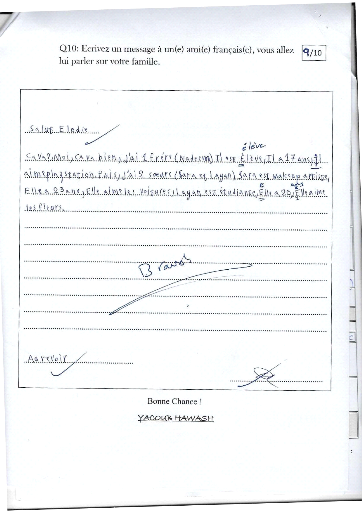 Q10: Ecrivez un message à un(e) ami(e) français(e), vous allez
lui parler sur votre famille.
9/10
Salut Elodie
élève
Ca va? Moi, ca va bien, j'ai 1 Frère (           ) Il est élève, Il a 17 ans, Il
aime          . Puis, j'ai 2 sœurs (Sara et Layan) Sara est makeup artiste,
Elle a 23 ans, Elle aime les voitures, Layan est étudiante, Elle a 20, Elle aime
ans
les fleurs.
Bravo!
Au revoir
Bonne Chance !
YACOUB HAWASH